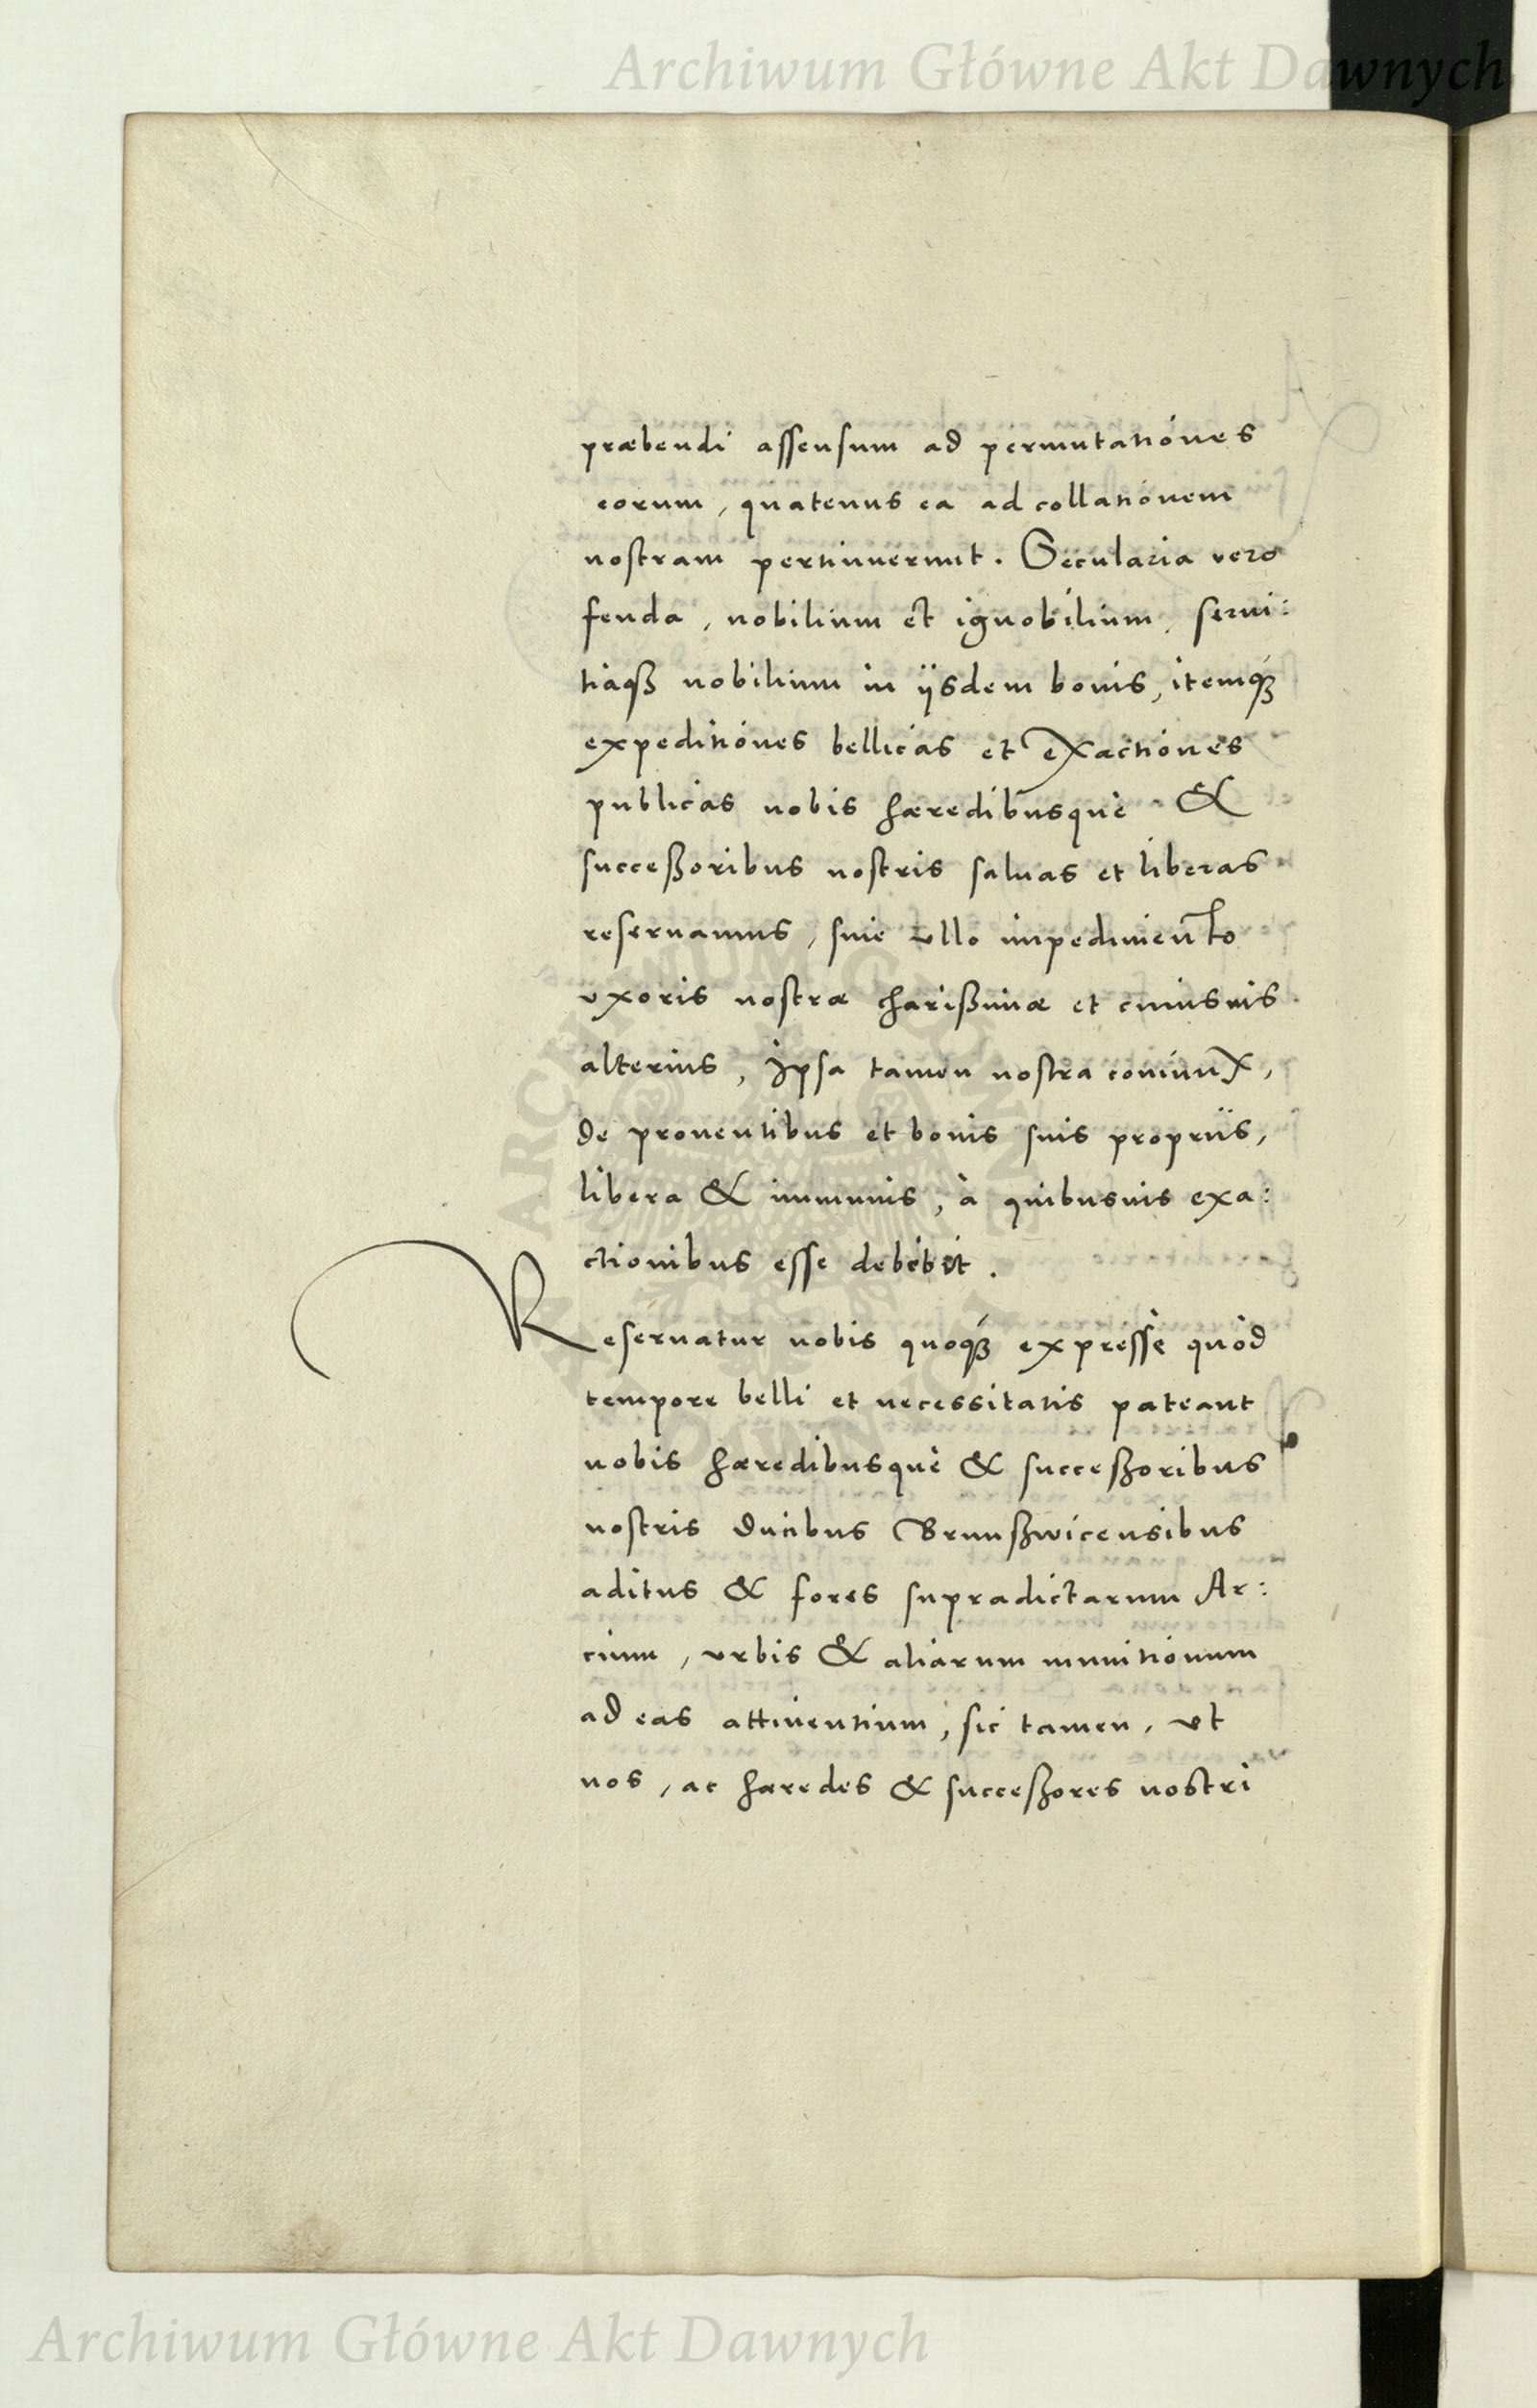 Archiwum Główne Akt Dawnych
præbendi assensum ad permutationes
eorum, quatenus ea ad collationem
nostram pertinuerunt. Secularia vero
feuda, nobilium et ignobilium, serui:
tiaqꝫ nobilium in ijsdem bonis, itemqꝫ
expeditiones bellicas et exactiones
publicas nobis hæredibusque &
succeßoribus nostris saluas et liberas
reseruamus, sine vllo impedimento
vxoris nostræ charißimæ et cuiusuis
alterius, Ipsa tamen nostra coniunx,
de prouentibus et bonis suis proprijs,
libera & immunis, à quibusuis exa:
ctionibus esse debebit.
Reseruatur nobis quoqꝫ expressè quòd
tempore belli et necessitatis pateant
nobis hæredibusque & succeßoribus
nostris Ducibus Brunßwicensibus
aditus & fores supradictarum Ar:
cium, vrbis & aliarum munitionum
ad eas attinentium, sic tamen, vt
nos, ac hæredes & succeßores nostri
ARCHIWUM GŁÓWNE AKT DAWNYCH
Archiwum Główne Akt Dawnych